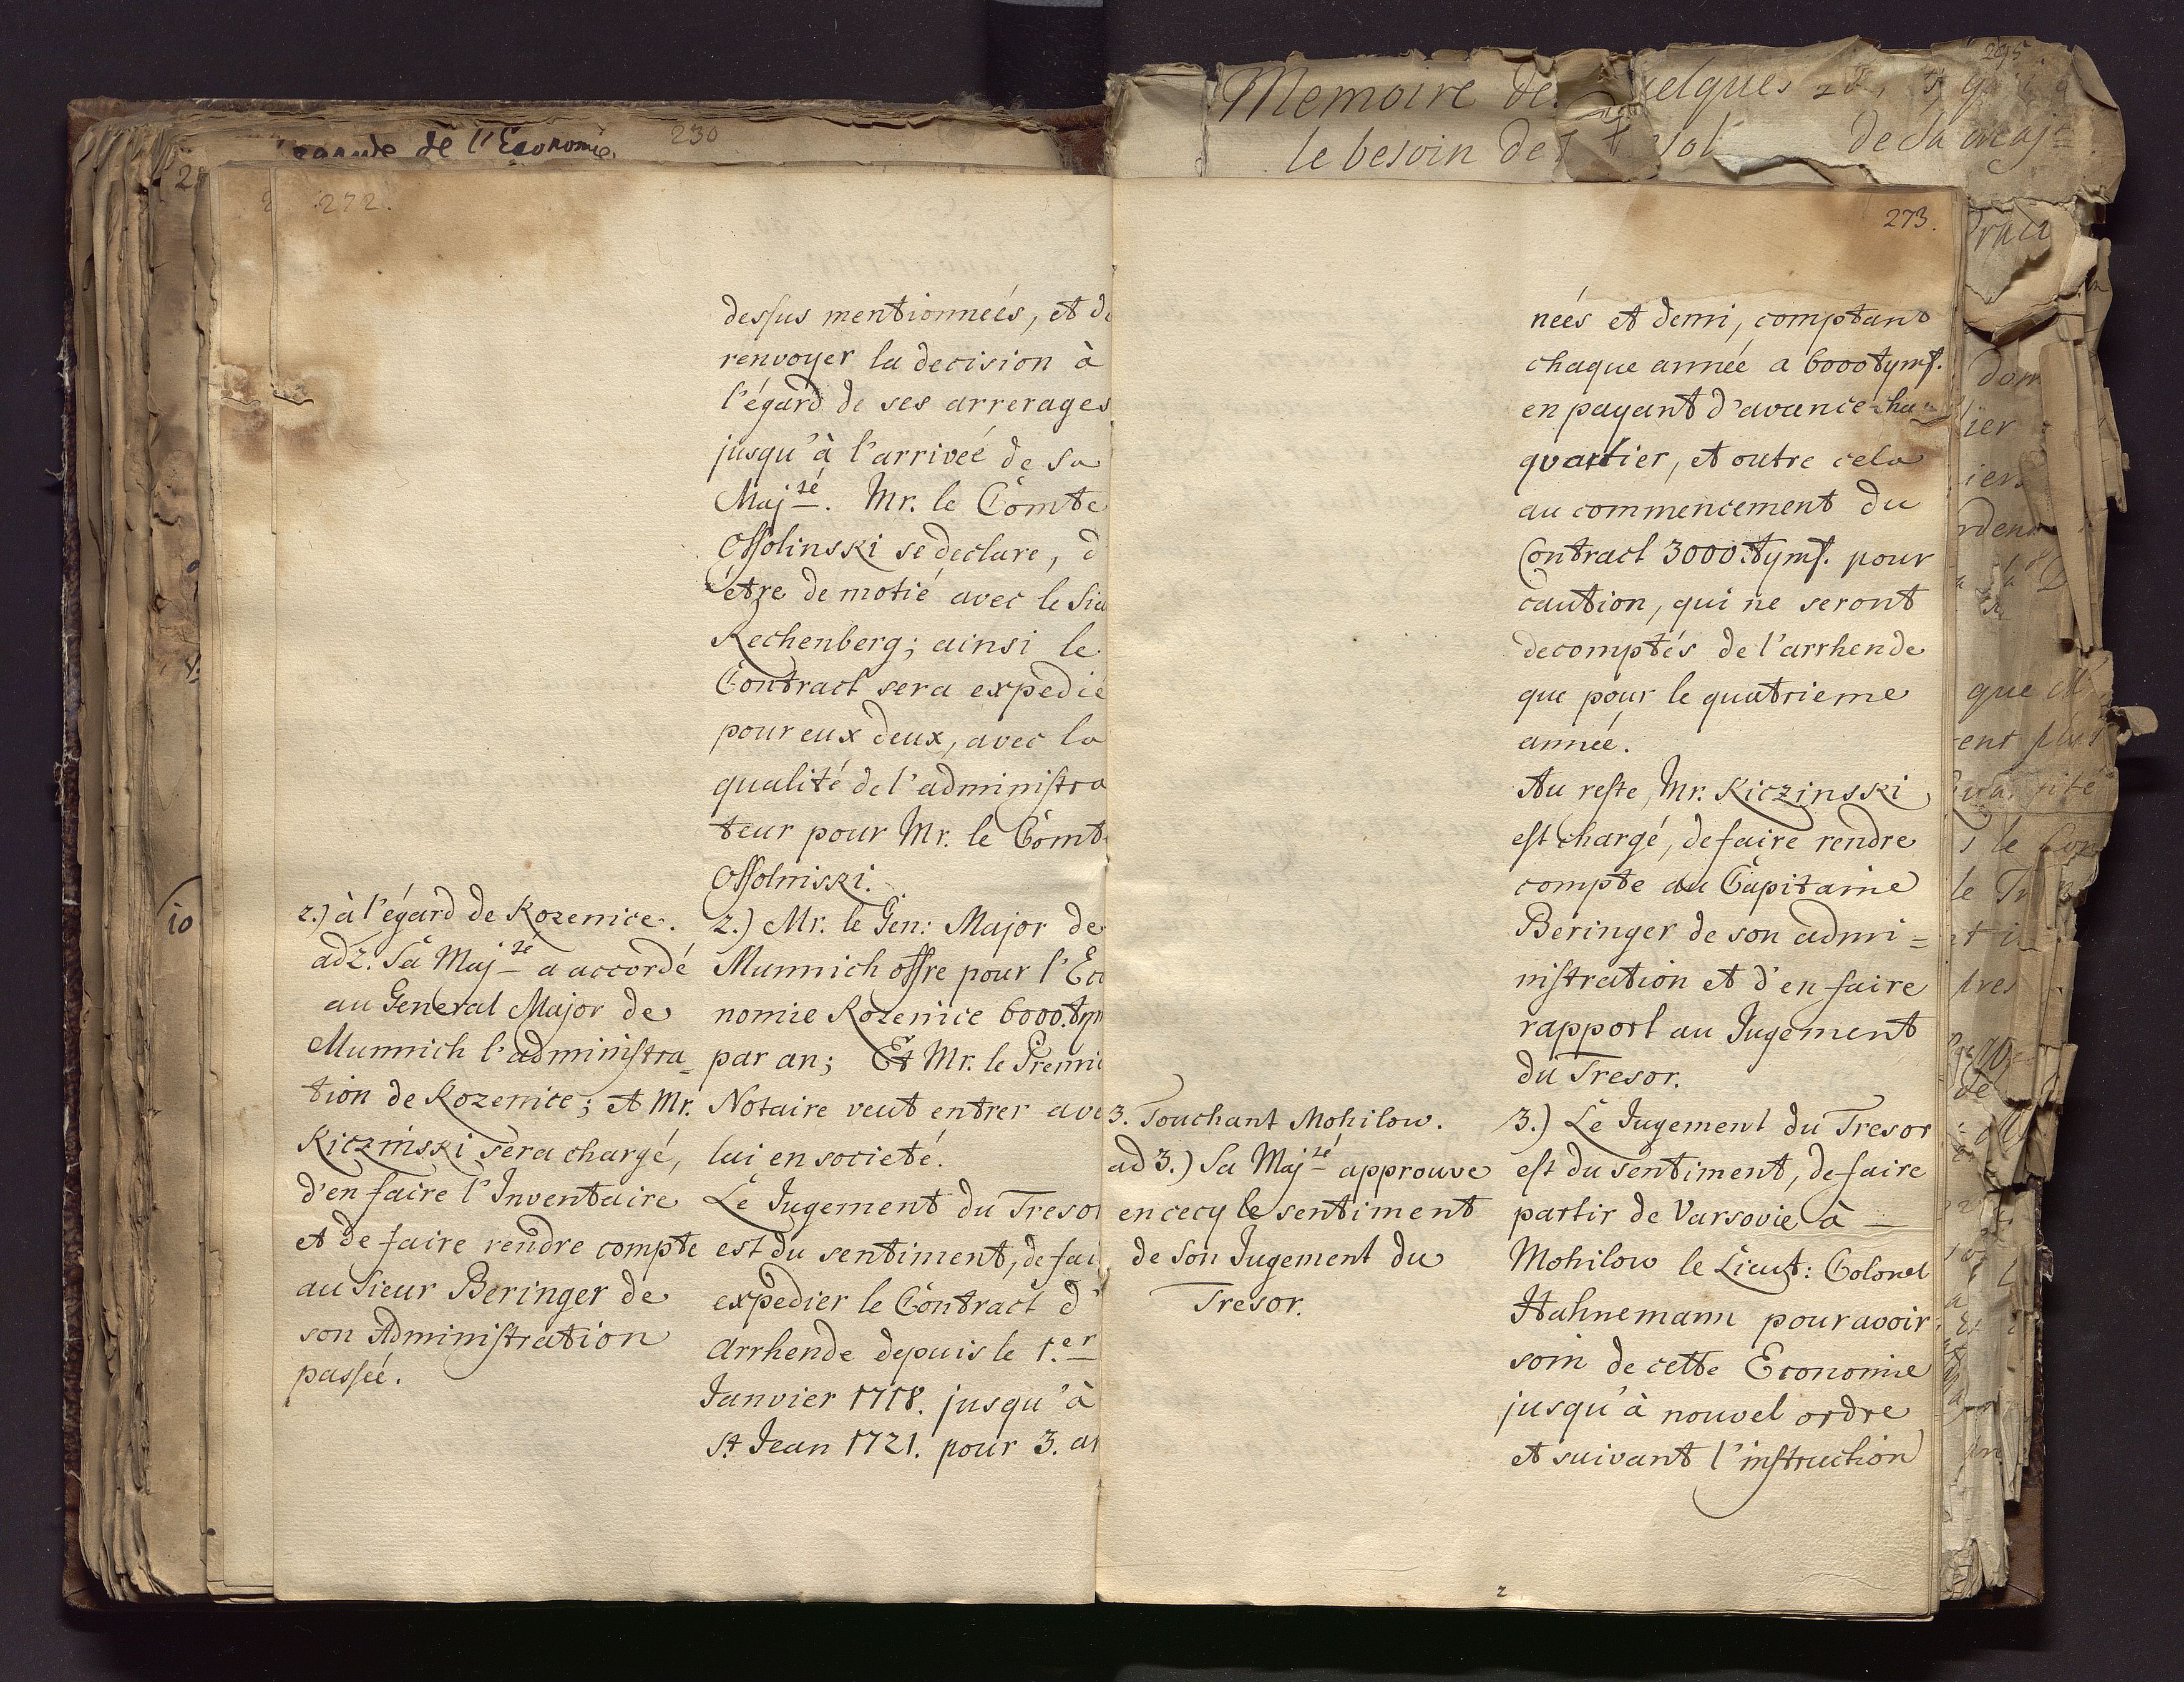 230
de l'Economie
272.
dessus mentionneés, et de
renvoyer la decision à
l'égard de ses arrerages
jusqu'à l'arriveé de sa
Maj.té Mr. le Comte
Ossolinski se declare, d'
étre de motié avec le
Rechenberg; ainsi le
Contract sera expedie
pour eux deux, avec la
qualité de l'administra
teur pour Mr. le Comte
Ossolinski.
2.) à l'égard de Rozenice.
ad 2. Sa Maj.té a accordé
au General Major de
Munnich l'administra=
tion de Rozenice; et Mr.
Kiczinski sera chargé,
d'en faire l'Inventaire
et de faire rendre compte
au Sieur Beringer de
son Administration
passeé.
2.) Mr. le Gen: Major de
Munnich offre pour l'Eco
nomie Rozenice 6000. tym
par an; Et Mr. le Premi
Notaire veut entrer ave
lui en societé.
Le Jugement du Tresor
est du sentiment, de fai
expedier le Contract d'
Arrhende depuis le 1.er
Janvier 1718. jusqu'à
St Jean 1721. pour 3. an
Memoire de quelques
le besoin de de Sa Maj.
295
273.
neés et demi, comptant
chaque anneé a 6000 tymf.
en payant d'avance cha
quartier, et outre cela
au commencement du
Contract 3000. tymf. pour
caution, qui ne seront
decomptés de l'arrhende
que pour le quatrieme
anneé.
Au reste Mr. Kiczinski
est chargé, de faire rendre
compte au Capitaine
Beringer de son admi=
nistration et d'en faire
rapport au Jugement
du Tresor.
3. Touchant Mohilow.
ad 3.) Sa Maj.té approuve
en cecy le sentiment
de Son Jugement du
Tresor.
3.) Le Jugement du Tresor
est du sentiment, de faire
partir de Varsovie à
Mohilow le Lieut: Colonel
Hahnemann pour avoir
soin de cette Economie
jusqu'à nouvel ordre
et suivant l'instruction
2
10